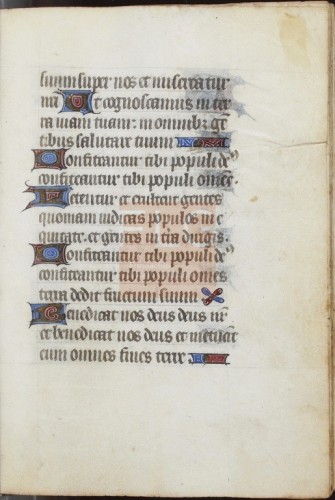 suum super nos et misereatur
nri Ut cognoscamus in ter
ra uiam tuam: in omnibz gē
tibus salutare tuum
Confiteantur tibi populi de9
confiteantur tibi populi omēs.
Letentur et exultent gentes
quoniam iudicas populos in e
quitate. et gentes in tīra dirigis.
Confiteantur tibi populi de9
confiteantur tibi populi omēs
terra dedit fructum suum
Benedicat nos deus deus nr̄
et benedicat nos deus et metuāt
eum omnes fines terre